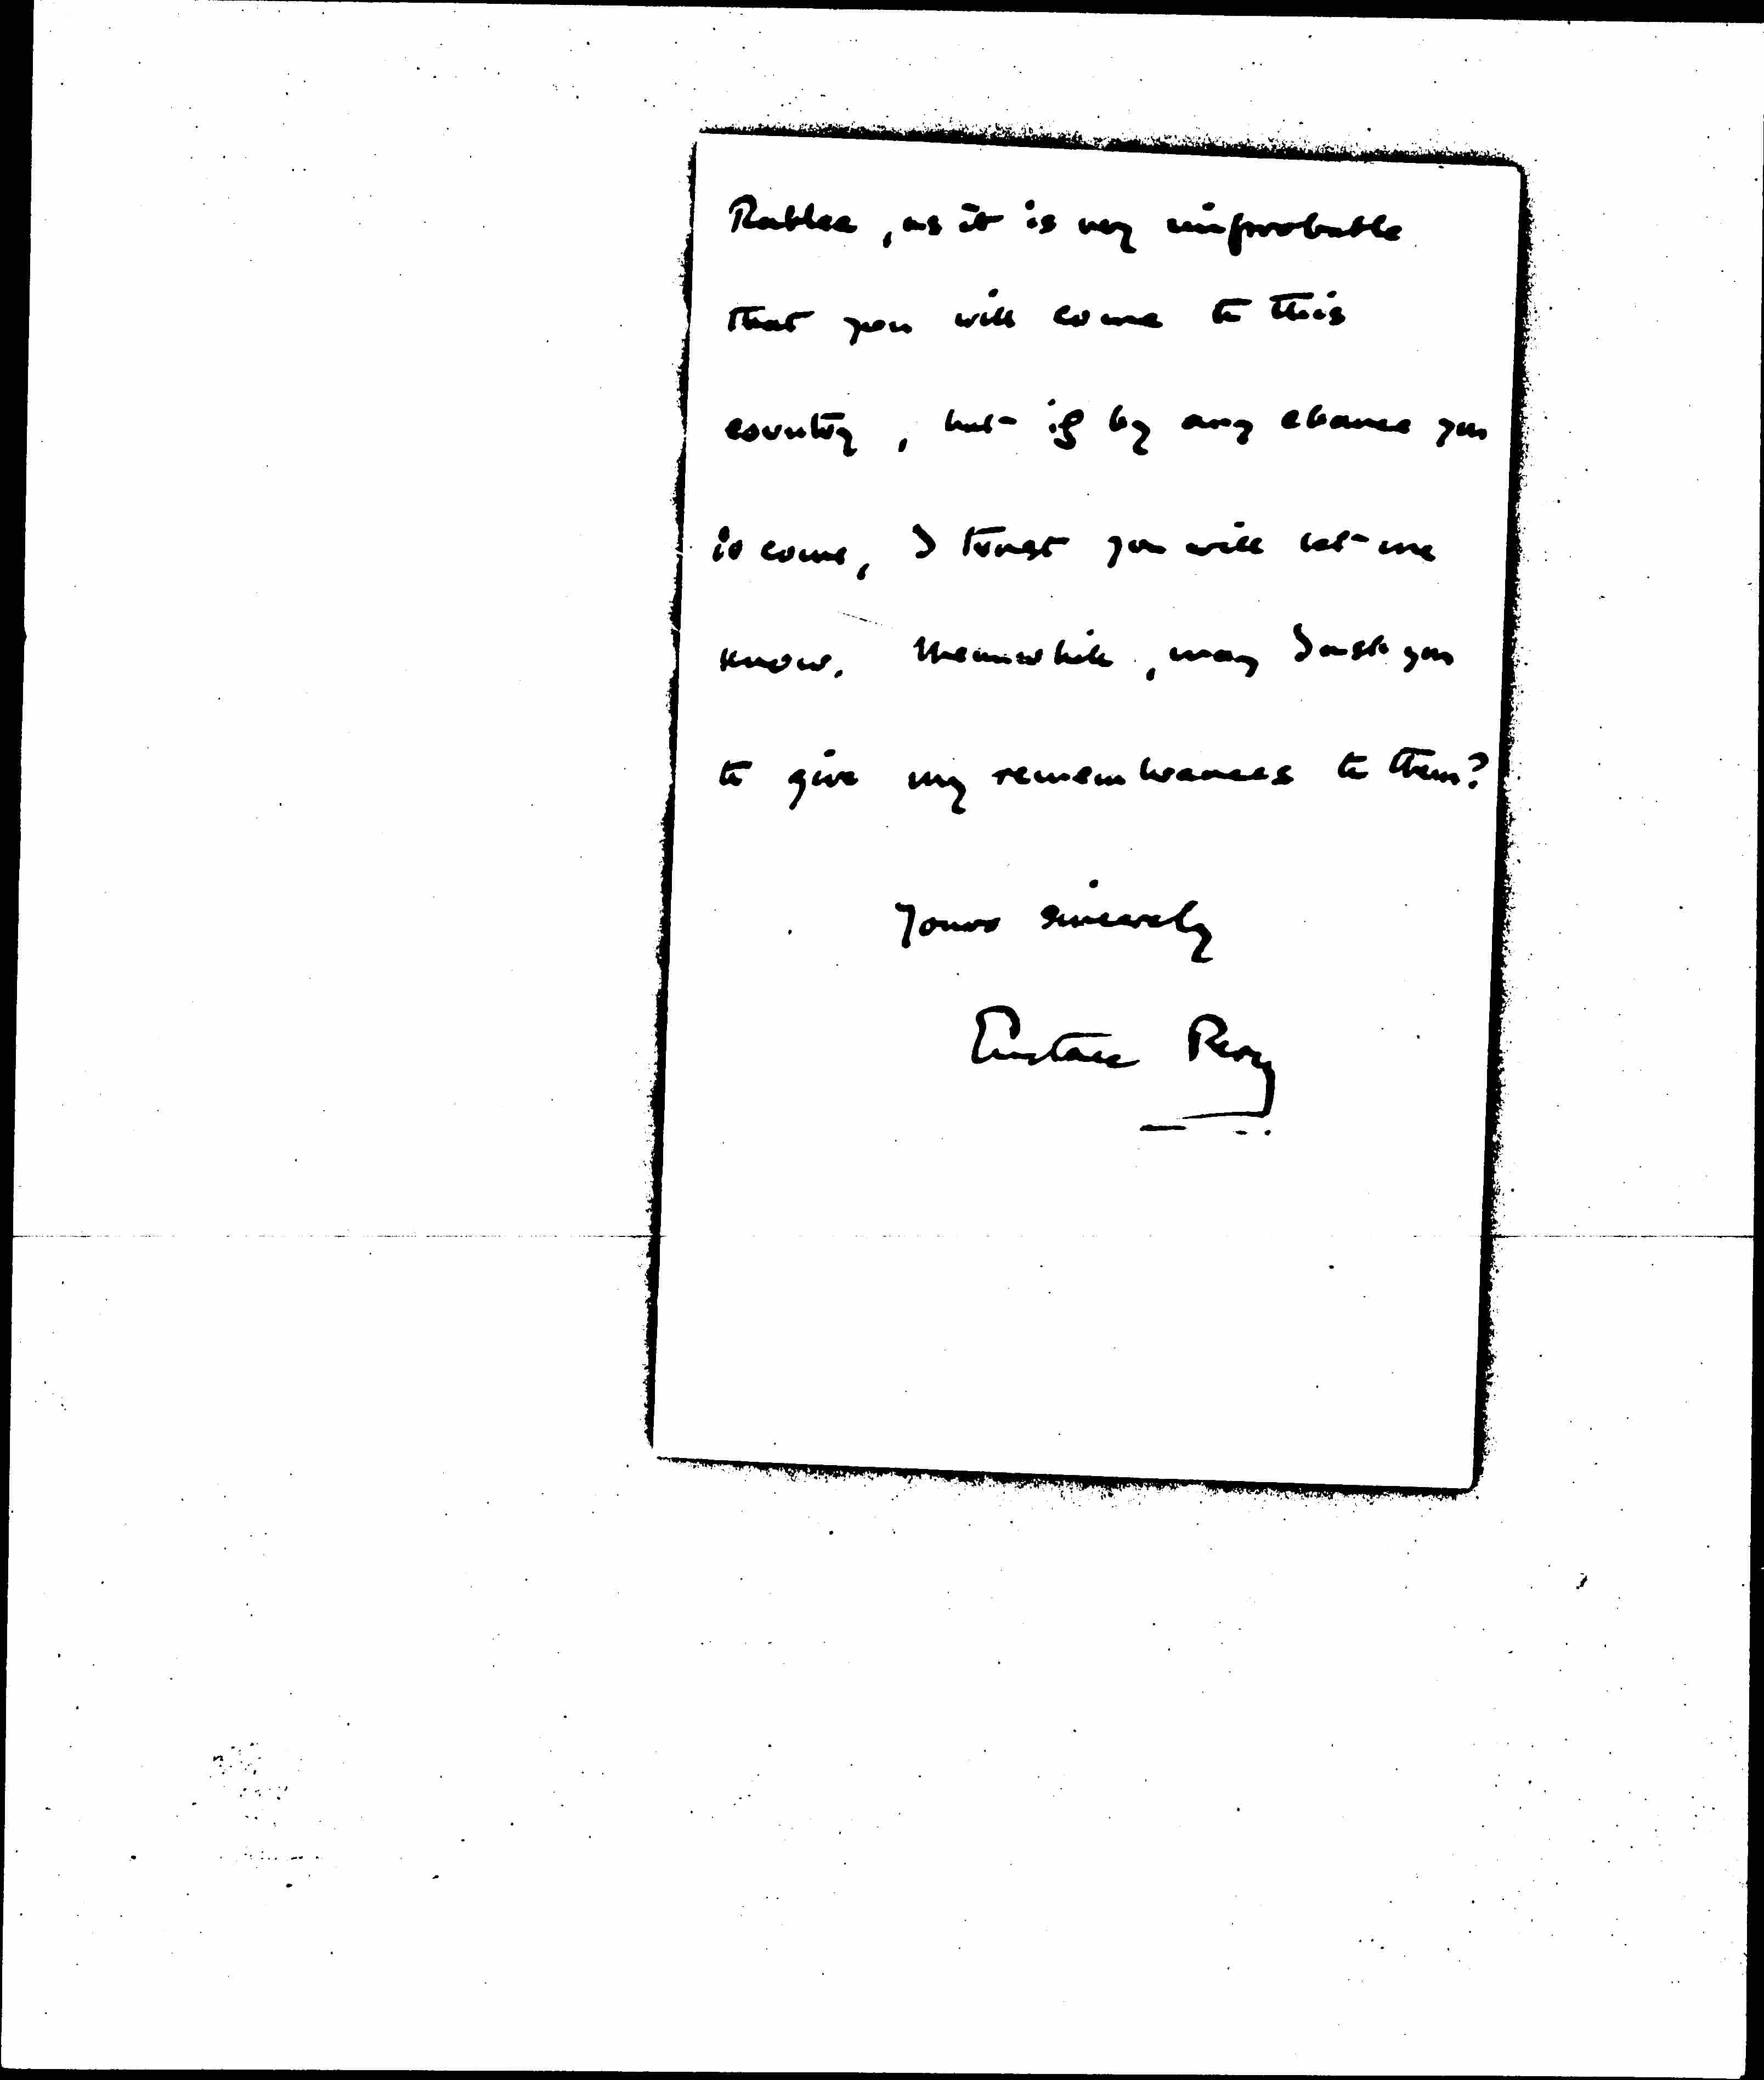 Rublee, as it is very improbable
that you will come to this
country, but if by any chance you
do come, I trust you will let me
know. Meanwhile, may I ask you
to give my remembrances to them?
Yours sincerely
Eustace Percy